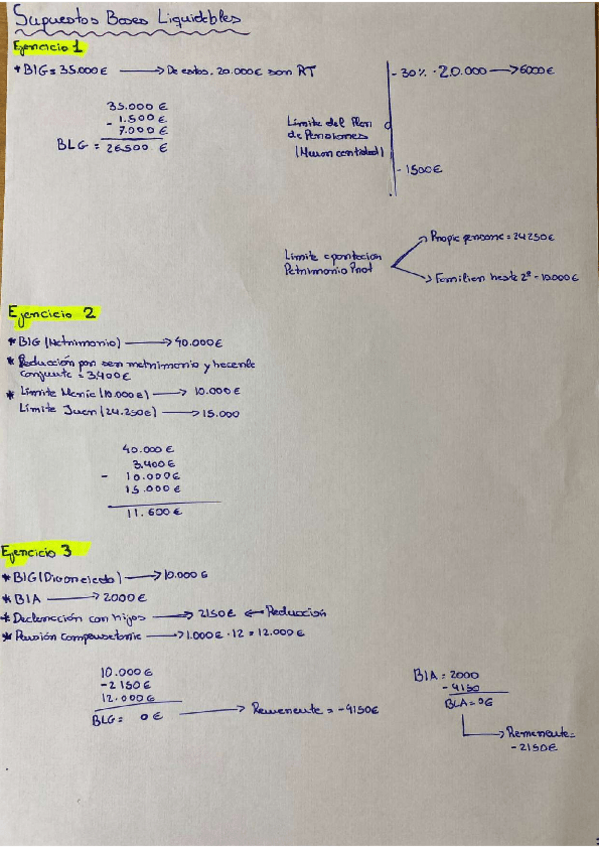 Supuestos Bases Liquidables
Ejercicio 1
* BIG = 35.000 € → De estos, 20.000 € son RT
35.000 €
- 1.500 €
7.000 €
BLG = 26500 €
Límite del Plan
de Pensiones
(Menor cantidad)
- 30% · 20.000 → 6000 €
- 1500 €
Límite aportación
Patrimonio Prot
→ Propia persona = 24250 €
→ Familiar hasta 2º = 10.000 €
Ejercicio 2
* BIG (Matrimonio) → 40.000 €
* Reducción por ser matrimonio y hacerla
conjunta = 3.400 €
* Límite María (10.000 €) → 10.000 €
Límite Juan (24.250 €) → 15.000
40.000 €
3.400 €
- 10.000 €
15.000 €
11.600 €
Ejercicio 3
* BIG (Divorciado) → 10.000 €
* BIA → 2000 €
* Declaración con hijos → 2150 € ← Reducción
* Pensión compensatoria → 1.000 € · 12 = 12.000 €
10.000 €
- 2150 €
12.000 €
BLG = 0 € → Remanente = -4150 €
BIA = 2000
- 4150
BLA = 0 €
→ Remanente =
- 2150 €